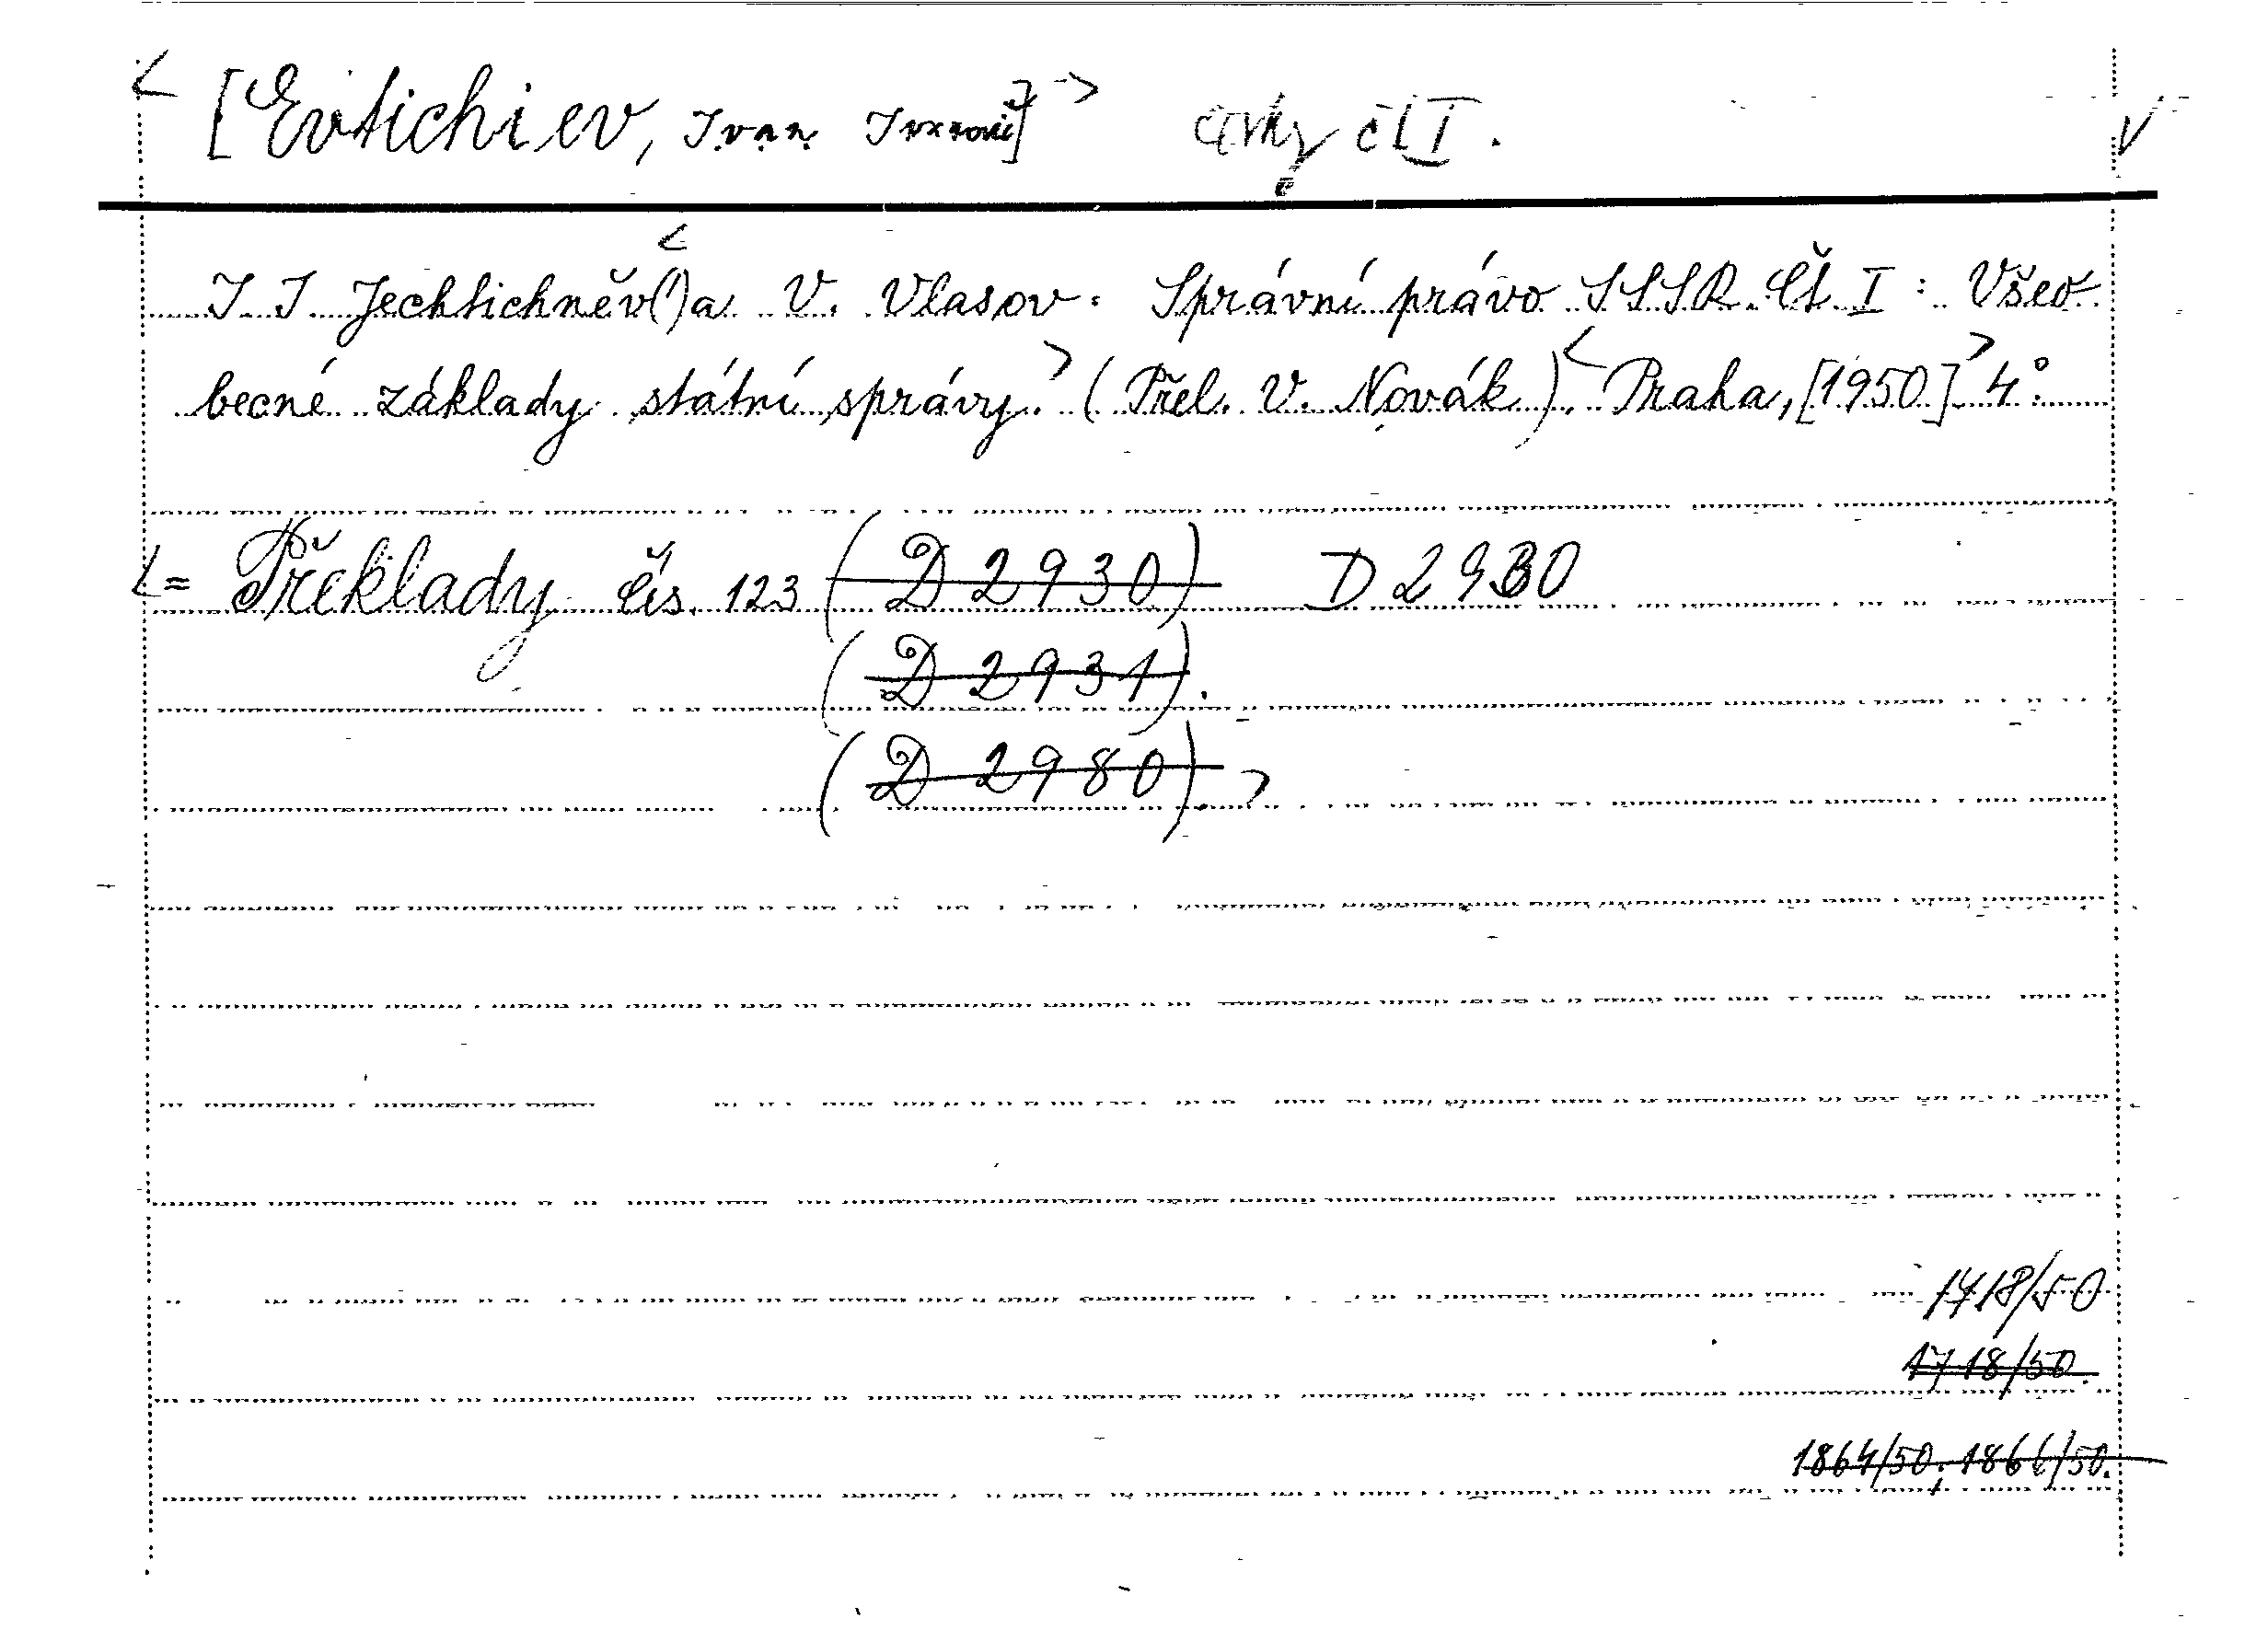 < [Evtichiev, Ivan Ivanovič] > čt I. V
I I Jechtichněv(<')a V. Vlasov. Správní právo SSSR Čt. I : Všeo
becné základy státní správy.> (Přel. V. Novák).< Praha, [1950]> 4°.
<= Překlady čís. 123 (D 2930) D 2930
(D 2931).
(D 2980).>
1718/50
1718/50.
1864/50, 1866/50.